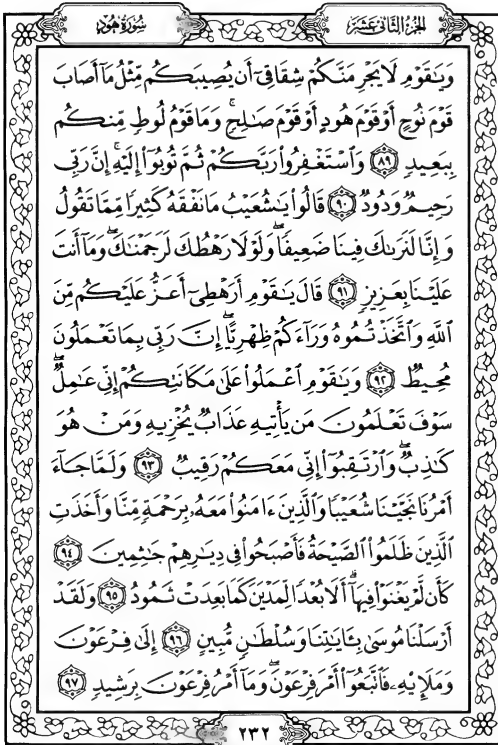 الجزء الثاني عشر
سورة هود
وَيَٰقَوْمِ لَا يَجْرِمَنَّكُمْ شِقَاقِيٓ أَن يُصِيبَكُم مِّثْلُ مَآ أَصَابَ
قَوْمَ نُوحٍ أَوْ قَوْمَ هُودٍ أَوْ قَوْمَ صَٰلِحٍۚ وَمَا قَوْمُ لُوطٍ مِّنكُم
بِبَعِيدٍ ٨٩ وَٱسْتَغْفِرُوا۟ رَبَّكُمْ ثُمَّ تُوبُوٓا۟ إِلَيْهِۚ إِنَّ رَبِّى
رَحِيمٌ وَدُودٌ ٩٠ قَالُوا۟ يَٰشُعَيْبُ مَا نَفْقَهُ كَثِيرًا مِّمَّا تَقُولُ
وَإِنَّا لَنَرَىٰكَ فِينَا ضَعِيفًاۖ وَلَوْلَا رَهْطُكَ لَرَجَمْنَٰكَۖ وَمَآ أَنتَ
عَلَيْنَا بِعَزِيزٍ ٩١ قَالَ يَٰقَوْمِ أَرَهْطِىٓ أَعَزُّ عَلَيْكُم مِّنَ
ٱللَّهِ وَٱتَّخَذْتُمُوهُ وَرَآءَكُمْ ظِهْرِيًّاۖ إِنَّ رَبِّى بِمَا تَعْمَلُونَ
مُحِيطٌ ٩٢ وَيَٰقَوْمِ ٱعْمَلُوا۟ عَلَىٰ مَكَانَتِكُمْ إِنِّى عَٰمِلٌۖ
سَوْفَ تَعْلَمُونَ مَن يَأْتِيهِ عَذَابٌ يُخْزِيهِ وَمَنْ هُوَ
كَٰذِبٌۖ وَٱرْتَقِبُوٓا۟ إِنِّى مَعَكُمْ رَقِيبٌ ٩٣ وَلَمَّا جَآءَ
أَمْرُنَا نَجَّيْنَا شُعَيْبًا وَٱلَّذِينَ ءَامَنُوا۟ مَعَهُۥ بِرَحْمَةٍ مِّنَّا وَأَخَذَتِ
ٱلَّذِينَ ظَلَمُوا۟ ٱلصَّيْحَةُ فَأَصْبَحُوا۟ فِى دِيَٰرِهِمْ جَٰثِمِينَ ٩٤
كَأَن لَّمْ يَغْنَوْا۟ فِيهَآۗ أَلَا بُعْدًا لِّمَدْيَنَ كَمَا بَعِدَتْ ثَمُودُ ٩٥ وَلَقَدْ
أَرْسَلْنَا مُوسَىٰ بِـَٔايَٰتِنَا وَسُلْطَٰنٍ مُّبِينٍ ٩٦ إِلَىٰ فِرْعَوْنَ
وَمَلَإِي۟هِۦ فَٱتَّبَعُوٓا۟ أَمْرَ فِرْعَوْنَۖ وَمَآ أَمْرُ فِرْعَوْنَ بِرَشِيدٍ ٩٧
٢٣٢